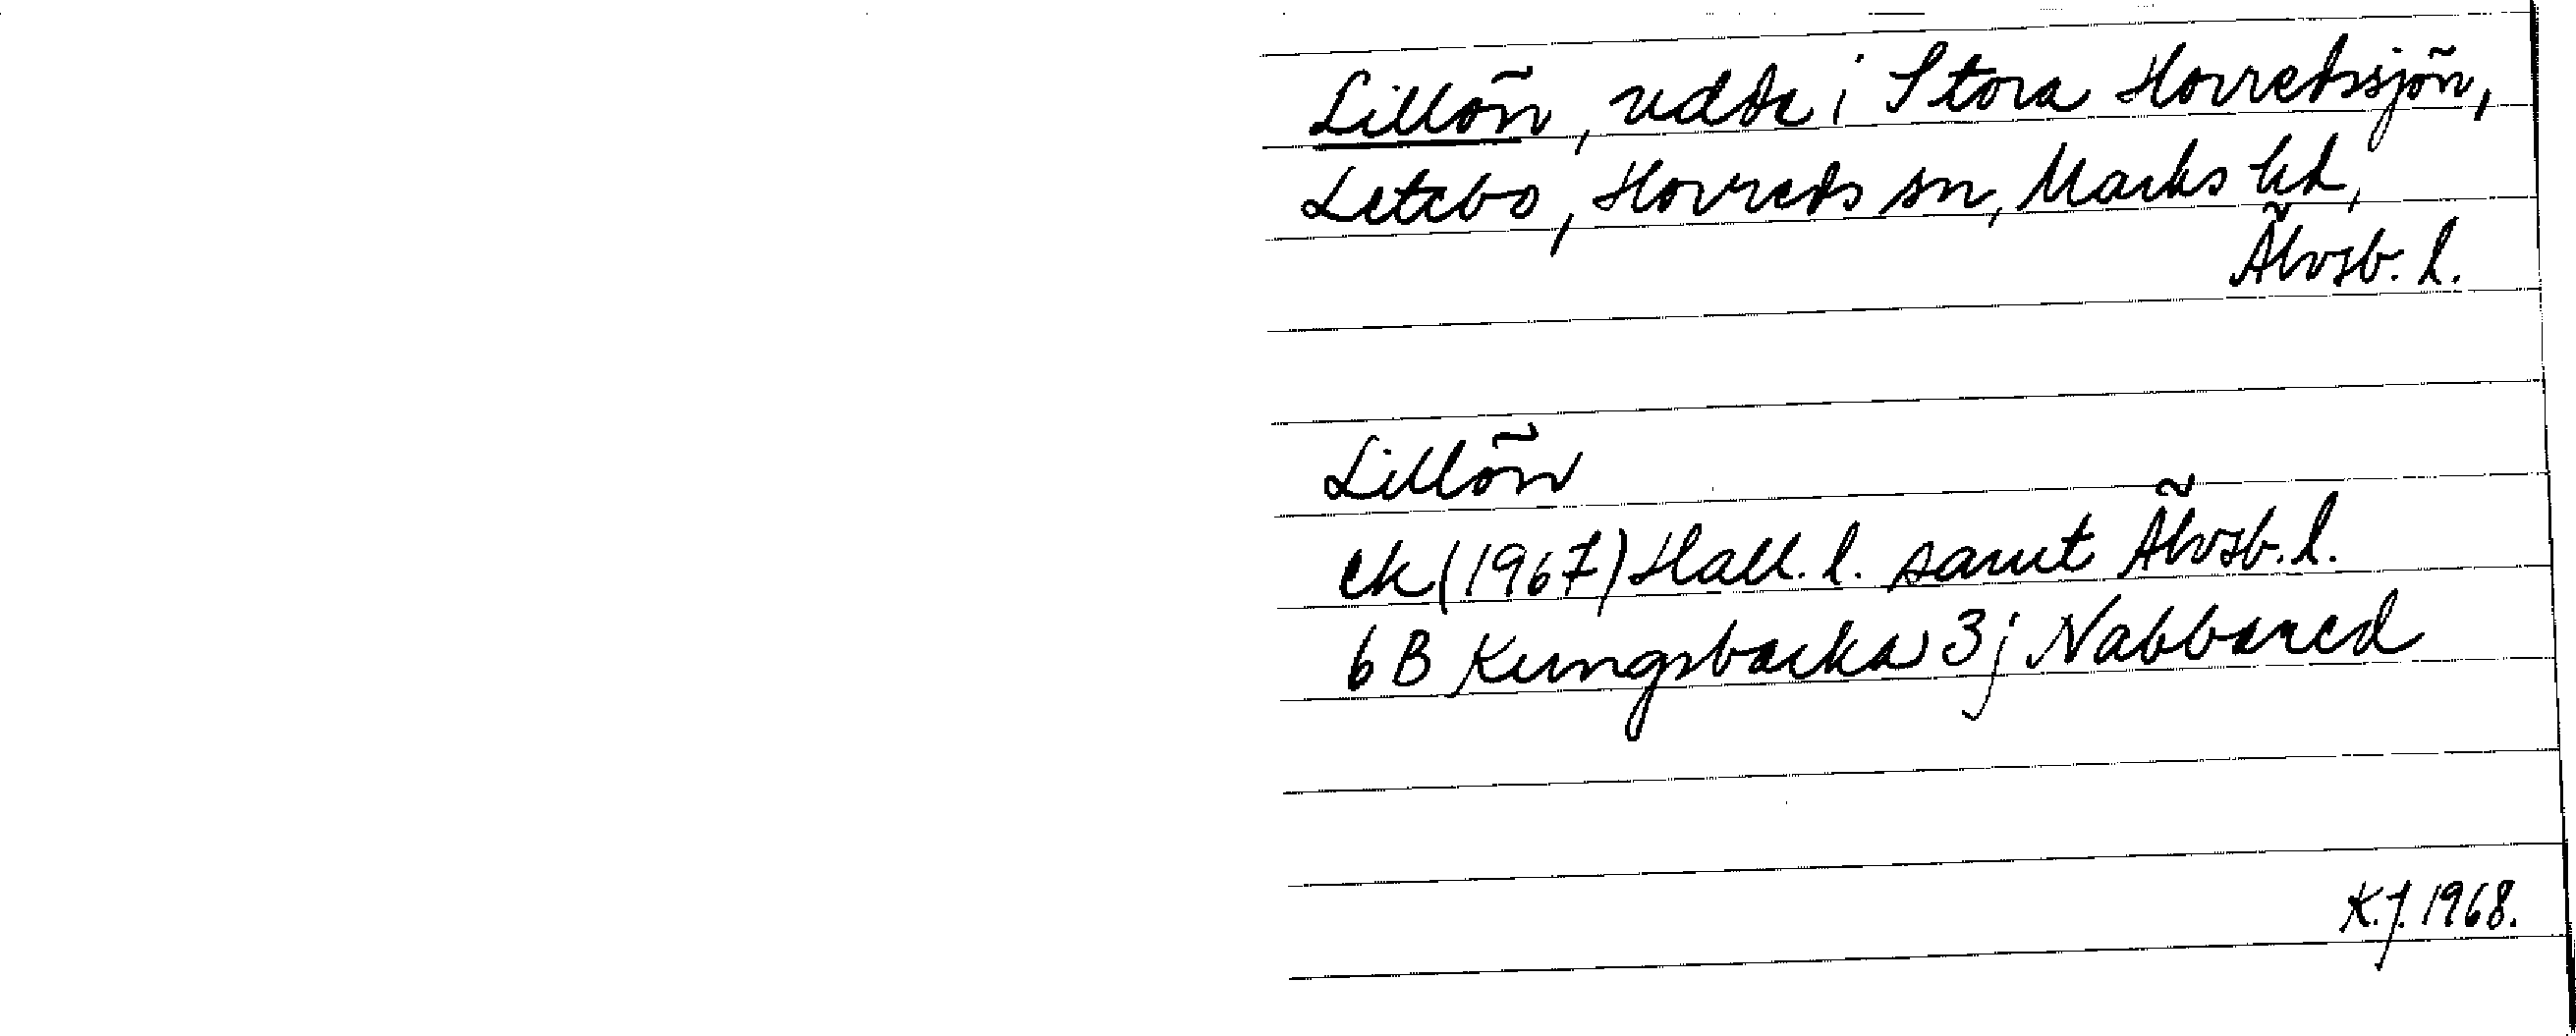 Lillön, udde i Stora Horredssjön,
Letebo, Horreds sn, Marks hd,
Älvsb. l.
Lillön
ek (1967) Hall. l. samt Älvsb. l.
6 B Kungsbacka 3j Nabbared
K.J. 1968.